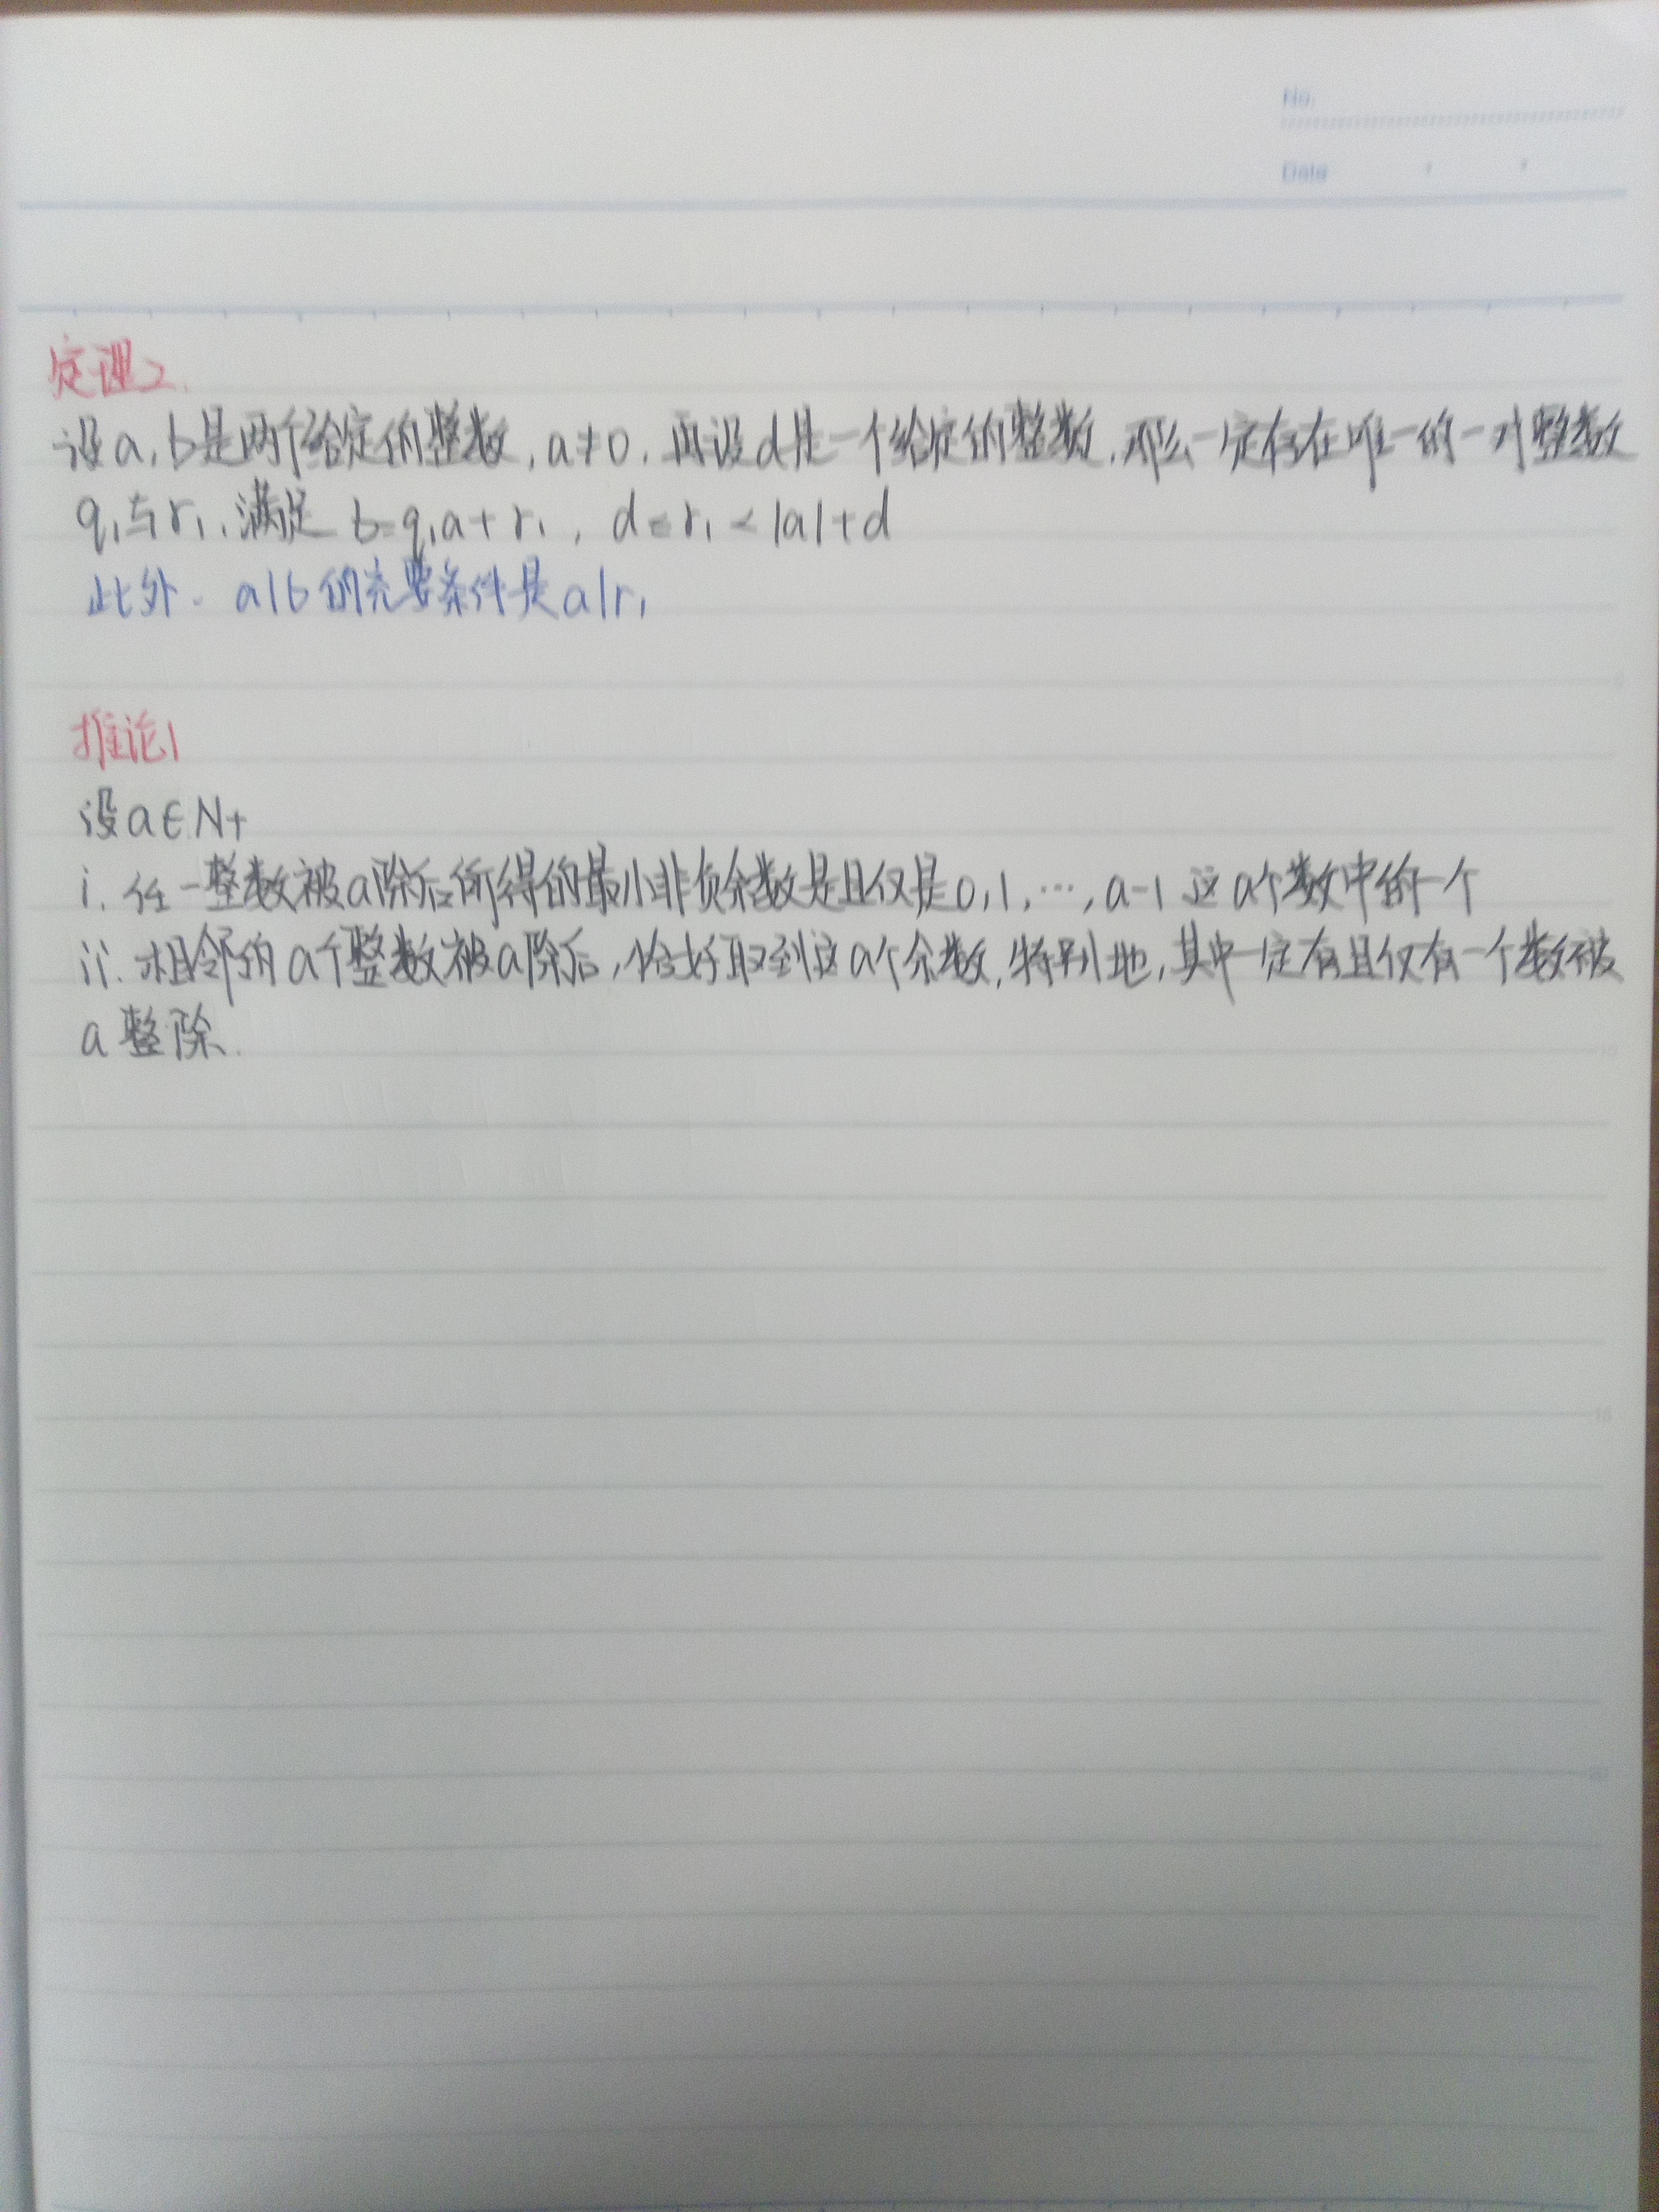 No.
Date
定理2.
设a,b是两个给定的整数,a≠0.再设d是一个给定的整数.那么一定存在唯一的一对整数
q₁与r₁,满足 b=q₁a+r₁, d≤r₁<|a|+d
此外. a|b的充要条件是a|r₁
推论1
设a∈N+
i.任一整数被a除后所得的最小非负余数是且仅是0,1,…,a-1这a个数中的一个
ii.相邻的a个整数被a除后,恰好取到这a个余数.特别地,其中一定有且仅有一个数被
a整除.